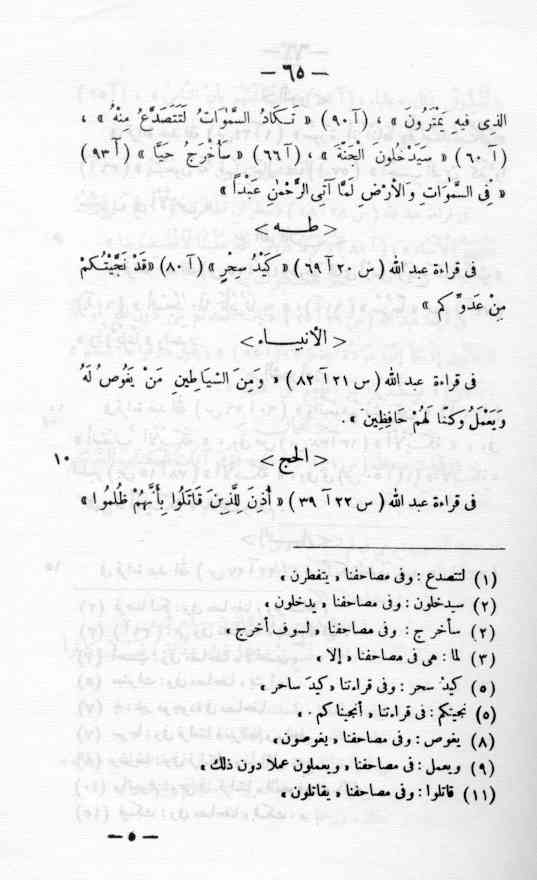 — ٦٥ —
الذِى فِيهِ يَمْتَرُونَ » ، (آ ٩٠) « تَكَادُ السَّمٰوَاتُ لَتَتَصَدَّعُ مِنْهُ » ،
(آ ٦٠) « سَيَدْخُلُونَ الْجَنَّةَ » ، (آ ٦٦) « سَأُخْرَجُ حَيًّا » (آ ٩٣)
« فِى السَّمٰوَاتِ وَالْأَرْضِ لَمَّا آتِى الرَّحْمٰنِ عَبْدًا »
< طـه >
فى قراءة عبد الله ( س ٢٠ آ ٦٩ ) « كَيْدُ سِحْرٍ » (آ ٨٠) « قَدْ نَجَّيْتُكمْ
مِنْ عَدوِّكم »
< الأنبياء >
فى قراءة عبد الله ( س ٢١ آ ٨٢ ) « وَمِنَ الشياطينِ مَنْ يَغُوصُ لَهُ
وَيَعْمَلُ وَكنَّا لَهُمْ حَافِظِين » .
< الحج > ١٠
فى قراءة عبد الله ( س ٢٢ آ ٣٩ ) « أُذِنَ لِلَّذِينَ قَاتَلُوا بِأَنَّهُمْ ظُلِمُوا »
(١) لتتصدع : وفى مصاحفنا « يتفطرن »
(٢) سيدخلون : وفى مصاحفنا « يدخلون »
(٢) سأخرج : وفى مصاحفنا « لسوف أخرج »
(٣) لما : هى فى مصاحفنا « إلا »
(٥) كيدُ سحر : وفى قراءتنا « كيدَ ساحر »
(٥) نجيتكم : فى قراءتنا « أنجيناكم »
(٨) يغوص : وفى مصاحفنا « يغوصون »
(٩) ويعمل : فى مصاحفنا « ويعملون عملا دون ذلك »
(١١) قاتلوا : وفى مصاحفنا « يقاتلون »
— ٥ —